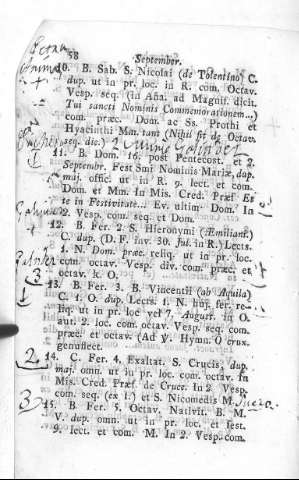 58 September.
10. B. Sab. S. Nicolai (de Tolentino) C.
dup. ut in pr. loc. in R. com. Octav.
Vesp. seq. (in Aña. ad Magnif. dicit.
Tui sancti Nominis Commemorationem...)
com. præc. Dom. ac Ss. Prothi et
Hyacinthi Mm. tant (Nihil fit de Octav.
seq. die.)
B. Dom. 16. post Pentecost. et 2.
Septembr. Fest Smi Nominis Mariæ, dup.
maj. offic. ut in R. 9. lect. et com.
Dom. et Mm. In Mis. Cred. Præf Et
te in Festivitate... Ev. ultim Dom. In
2. Vesp. com. seq. et Dom.
12. B. Fer. 2. S. Hieronymi (Æmilian.)
C. dup. (D. F. inv. 30. Jul. in R.) Lects.
1. N. Dom. præc. reliq. ut in pr. loc.
com. octav. Vesp. div. com. præc. et
octav. k. O.
13. B. Fer. 3. B. Vincentii (ab Aquila)
C. 1. O. dup. Lects. 1. N. huj. fer. re-
liq. ut in pr. loc vel 7. August. in O.
aut. 2. loc. com. octav. Vesp. seq. com.
præc. et octav. (Ad V. Hymn. O crux.
genuflect.
2 14. C. Fer. 4. Exaltat. S. Crucis, dup.
maj. omn. ut in pr. loc. com. octav. In
Mis. Cred. Præf. de Cruce. In 2. Vesp.
com. seq. (ex 1.) et S. Nicomedis M.
3 15. B. Fer. 5. Octav. Nativit. B. M.
V. dup. omn. ut in pr. loc. et fest.
9. lect. et com. M. In 2. Vesp. com.